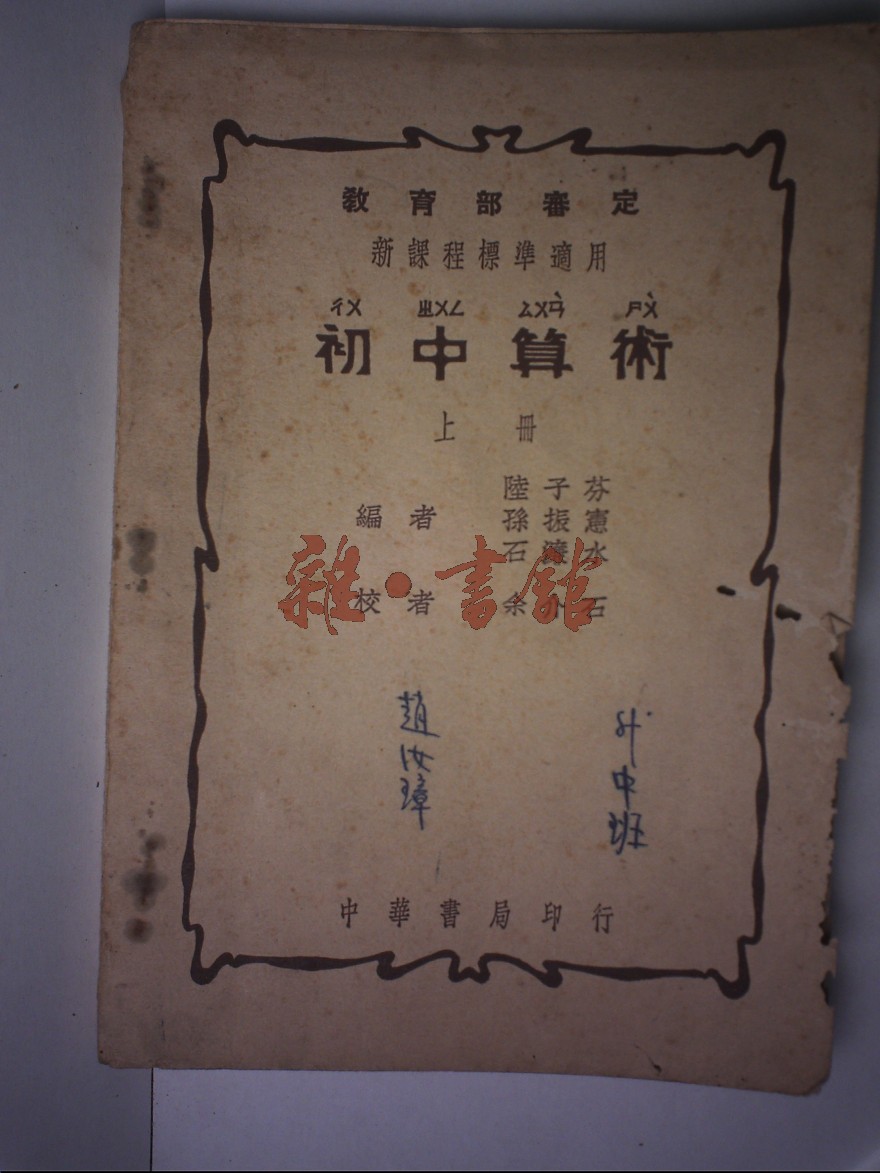 教育部審定
新課程標準適用
ㄔㄨ ㄓㄨㄥ ㄙㄨㄢˋ ㄕㄨˋ
初中算術
上冊
編者
陸子芬
孫振憲
石濂水
校者 余介石
雜·書館
趙汝璋
升中班
中華書局印行